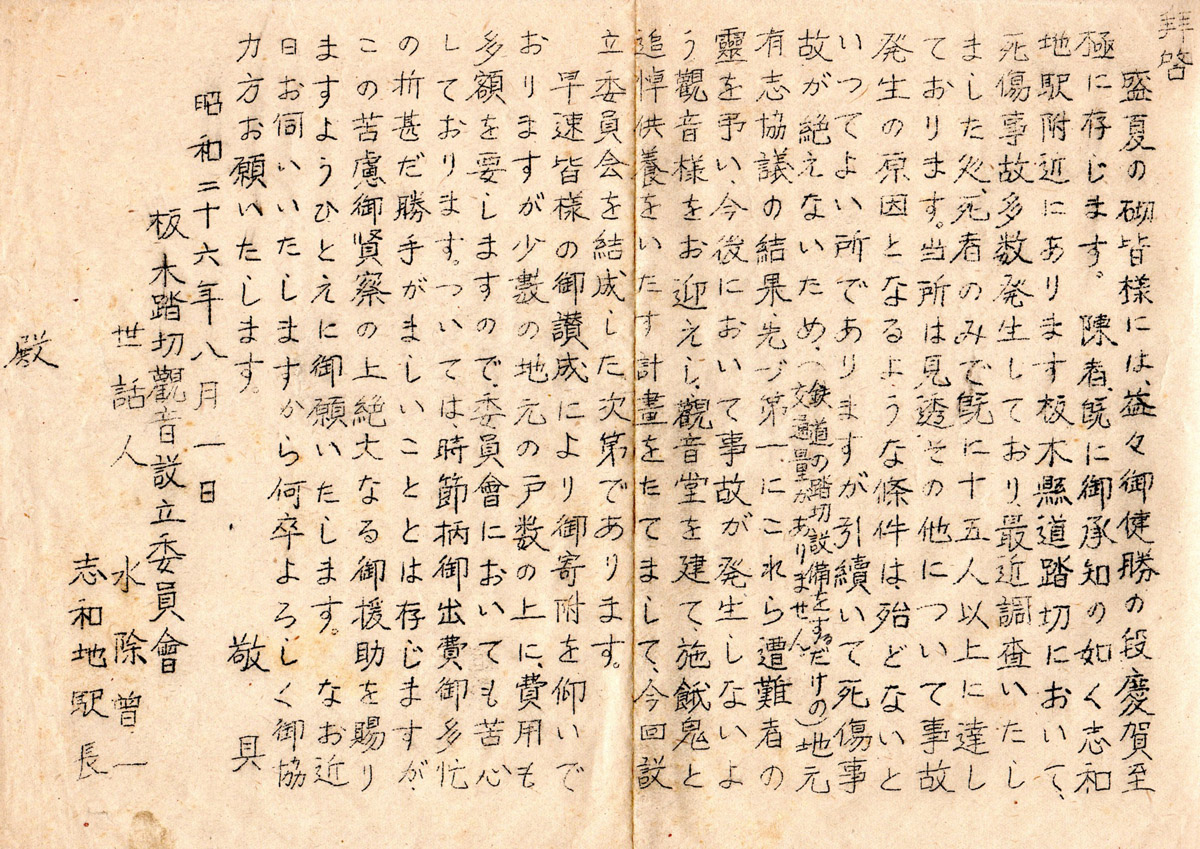 拜啓
盛夏の砌皆様には、益々御健勝の段慶賀至
極に存じます。陳者、既に御承知の如く志和
地駅附近にあります板木縣道踏切において、
死傷事故多数発生しており、最近調査いたし
ました処、死者のみで既に十五人以上に達し
ております。当所は見透その他について事故
発生の原因となるような條件は、殆どないと
いつてよい所でありますが引續いて死傷事
故が絶えないため、(鉄道の踏切設備をするだけの交通量がありません)地元
有志協議の結果、先づ第一にこれら遭難者の
靈を弔い、今後において事故が発生しないよ
う觀音様をお迎えし、觀音堂を建て施餓鬼と
追悼供養をいたす計畫をたてまして、今回設
立委員会を結成した次第であります。
早速皆様の御讃成により御寄附を仰いで
おりますが少数の地元の戸数の上に、費用も
多額を要しますので、委員會においても苦心
しております。ついては、時節柄御出費御多忙
の折甚だ勝手がましいこととは存じますが、
この苦慮御賢察の上絶大なる御援助を賜り
ますようひとえに御願いたします。なお近
日お伺いいたしますから何卒よろしく御協
力方お願いいたします。
敬具
昭和二十六年八月一日
板木踏切觀音設立委員會
世話人 水除曽一
志和地駅長
殿